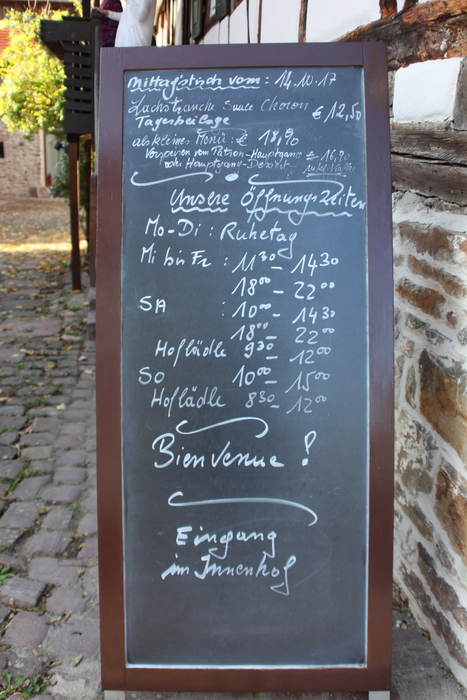 Mittagstisch vom: 14.10.17
Lachstranche Sauce Choron € 12,50
Tagesbeilage
als kleines Menü: € 18,90
Vorspeisen vom Patron - Hauptgang € 16,90
oder Hauptgang - Dessert
Unsere Öffnungszeiten
Mo-Di : Ruhetag
Mi bis Fr : 11³⁰ - 14³⁰
18⁰⁰ - 22⁰⁰
SA : 10⁰⁰ - 14³⁰
18⁰⁰ - 22⁰⁰
Hoflädle 9³⁰ - 12⁰⁰
So 10⁰⁰ - 15⁰⁰
Hoflädle 8³⁰ - 12⁰⁰
Bienvenue !
Eingang
im Innenhof